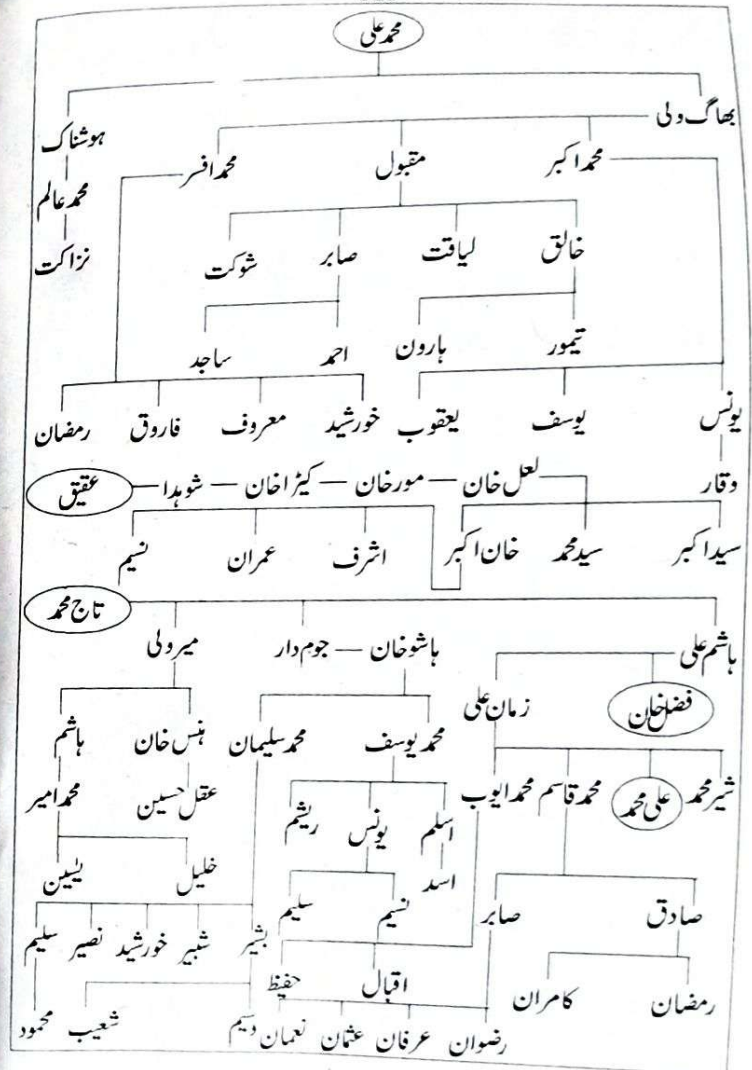 محمد علی
بھاگ ولی ہوشناک
محمد اکبر مقبول محمد افسر محمد عالم
خالق لیاقت صابر شوکت نزاکت
تیمور ہارون احمد ساجد
یونس یوسف یعقوب خورشید معروف فاروق رمضان
وقار لعل خان — مور خان — کیڑا خان — شوہدا — عقیق
سید اکبر سید محمد خان اکبر اشرف عمران نسیم
تاج محمد
ہاشم علی ہاشو خان — جوم دار میر ولی
فضل خان زمان علی محمد یوسف محمد سلیمان ہنس خان ہاشم
شیر محمد علی محمد محمد قاسم محمد ایوب اسلم یونس ریشم عقل حسین محمد امیر
اسد خلیل یٰسین
صادق صابر نسیم سلیم بشیر شبیر خورشید نصیر سلیم
رمضان کامران اقبال حفیظ
رضوان عرفان عثمان نعمان وسیم شعیب محمود